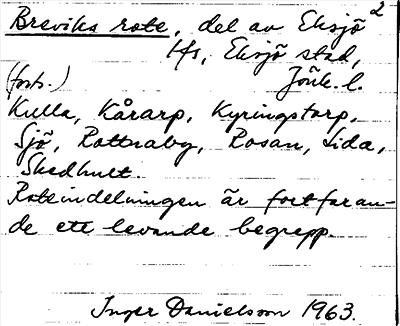 Breviks rote, del av Eksjö 2
lfs, Eksjö stad,
(forts.) Jönk. l.
Kulla, Kårarp, Kyringstorp,
Sjö, Rottnaby, Rosan, Lida,
Skedhult.
Roteindelningen är fortfaran-
de ett levande begrepp.
Inger Danielsson 1963.